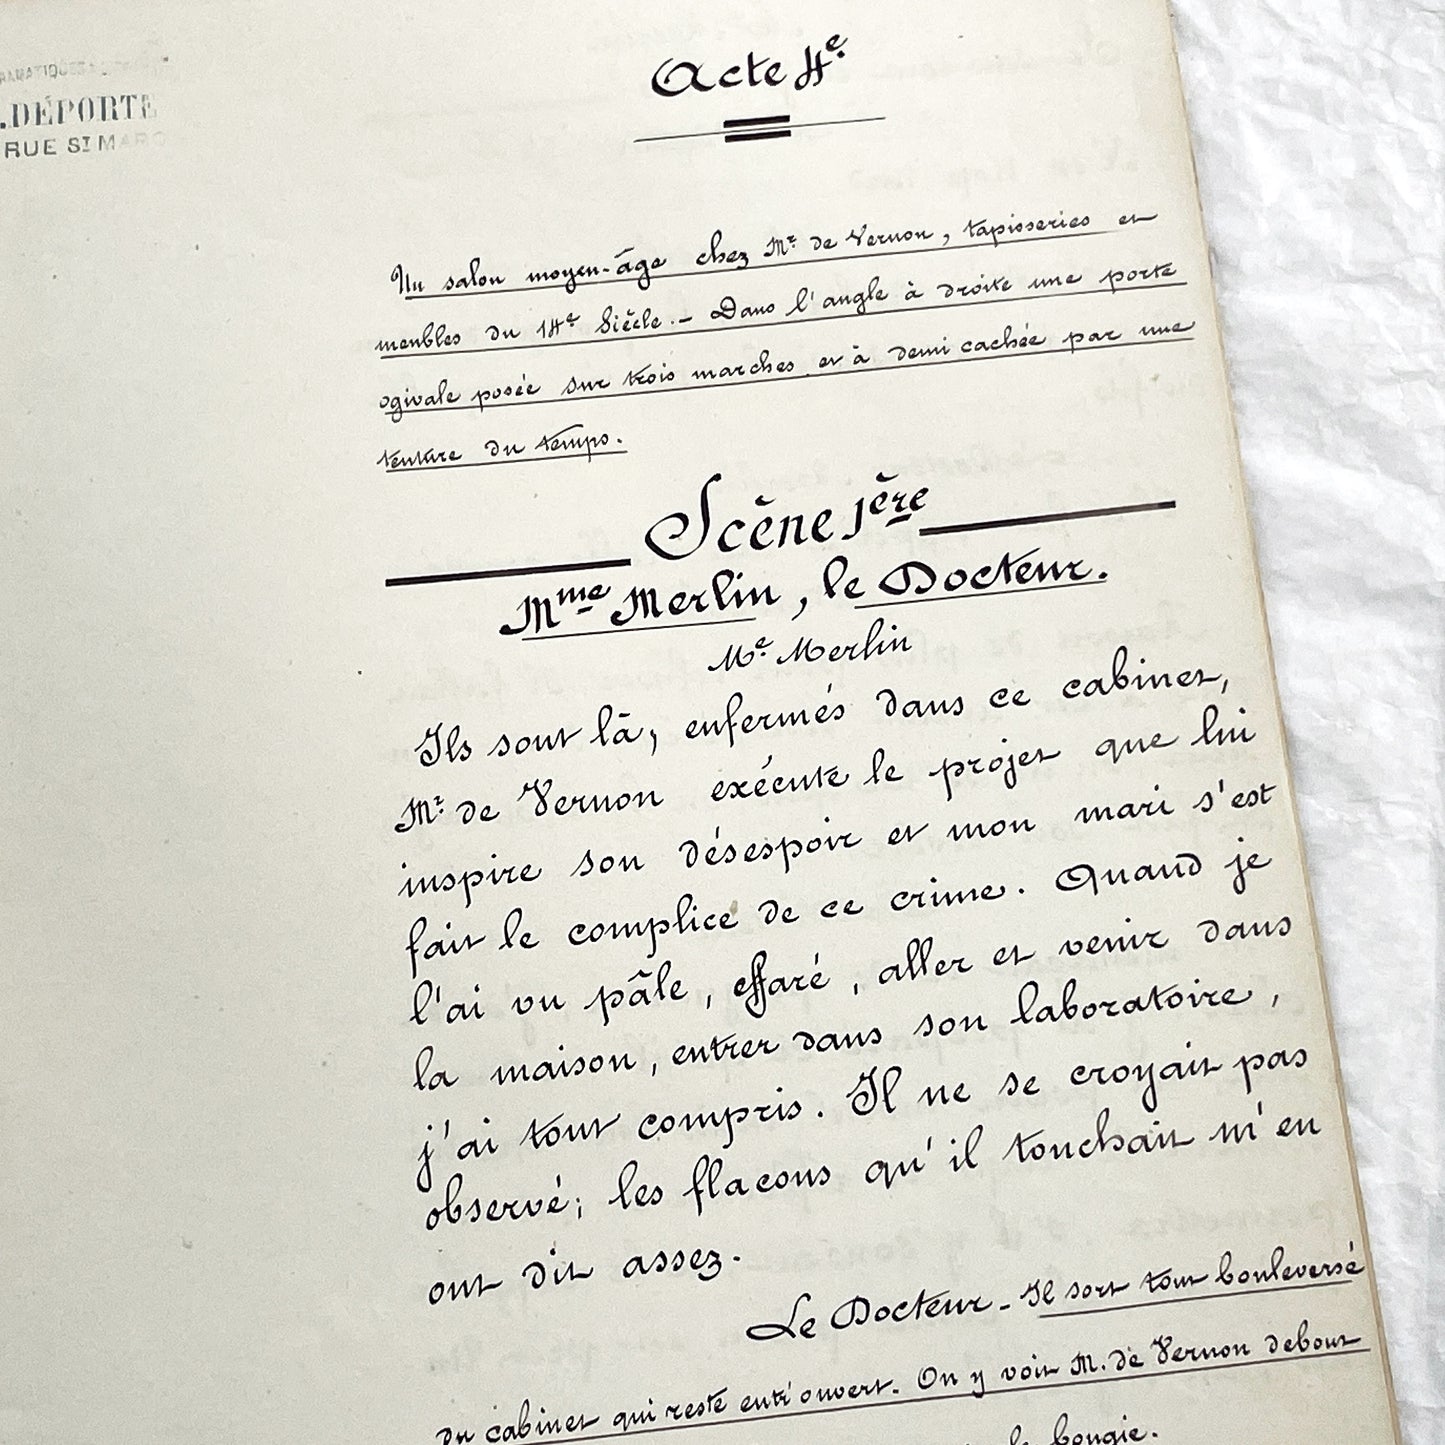 DRAMATIQUES
.DÉPORTE
RUE ST MARC
Acte 4e.
Un salon moyen-âge chez Mr. de Vernon, tapisseries et
meubles du 14e Siècle. - Dans l'angle à droite une porte
ogivale posée sur trois marches et à demi cachée par une
tenture du temps.
Scène 1ère
Mme Merlin, le Docteur.
Me. Merlin
Ils sont là, enfermés dans ce cabinet,
Mr. de Vernon exécute le projet que lui
inspire son désespoir et mon mari s'est
fait le complice de ce crime. Quand je
l'ai vu pâle, effaré, aller et venir dans
la maison, entrer dans son laboratoire,
j'ai tout compris. Il ne se croyait pas
observé; les flacons qu'il touchait m'en
ont dit assez.
Le Docteur - Il sort tout bouleversé
du cabinet qui reste entr'ouvert. On y voit M. de Vernon debout
la bougie.